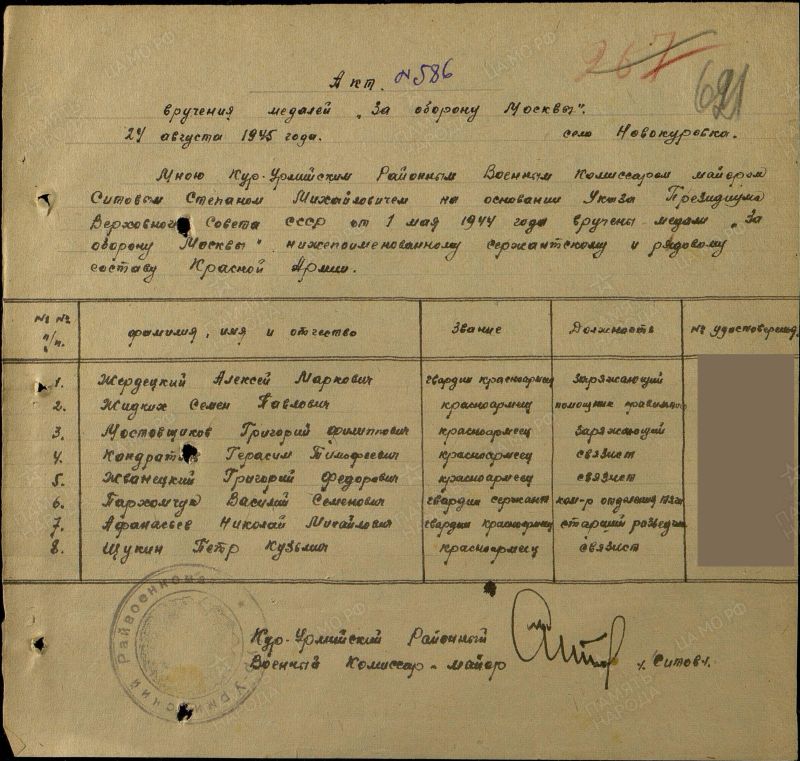 267
621
Акт. №586
вручения медалей „За оборону Москвы".
24 августа 1945 года. село Новокуровка.
Мною Кур-Урмийским Районным Военным Комиссаром майором
Ситовым Степаном Михайловичем на основании Указа Президиума
Верховного Совета СССР от 1 мая 1944 года вручены медали „За
оборону Москвы" нижепоименованному сержантскому и рядовому
составу Красной Армии.
№№ п/п. фамилия, имя и отчество Звание Должность № удостоверен.
1. Жердецкий Алексей Маркович гвардии красноармеец заряжающий
2. Жидких Семен Павлович красноармеец помощник
3. Мостовщиков Григорий Филиппович красноармеец заряжающий
4. Герасим Тимофеевич красноармеец связист
5. Жванецкий Григорий Федорович красноармеец связист
6. Пархомчук Василий Семенович гвардии сержант ком-р отделения
7. Афанасьев Николай Михайлович гвардии красноармеец старший разведчик
8. Щукин Петр Кузьмич красноармеец связист
Кур-Урмийский Районный
Военный Комиссар - майор /. Ситов /.
ЦАМО.РФ
ПАМЯТЬ НАРОДА